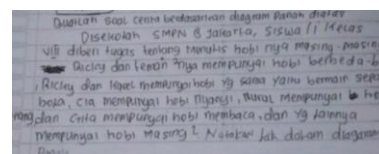 Buatlah soal cerita berdasarkan diagram panah diatas
Disekolah SMPN 8 Jakarta, Siswa/i kelas
VIII diberi tugas tentang menulis hobi nya masing-masing
Ricky dan teman"nya mempunyai hobi berbeda-b
, Ricky dan mempunyai hobi yg sama yaitu bermain sepa
bola, Cia mempunyai hobi nyanyi, Nurul mempunyai he
dan Gita mempunyai hobi membaca, dan yg lainnya
mempunyai hobi masing? Nyatakan lah dalam diagram